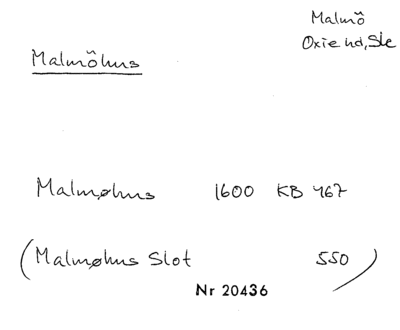 Malmö
Oxie hd, Sk
Malmöhus
Malmøhus 1600 KB 467
(Malmøhus Slot 550)
Nr 20436